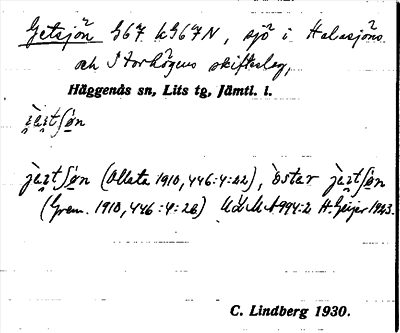 Getsjön 367 k367N, sjö i Halasjöns
och Storhögens skifteslag,
Häggenås sn, Lits tg, Jämtl. l.
jȧ̀ɪtʃön
jȧ̀ɪtʃön (Ollata 1910, 446:4:22), öster jȧ̀ɪtʃön
(Grem. 1910, 446:4:28) ULMA 994:2 H. Geijer 1923.
C. Lindberg 1930.